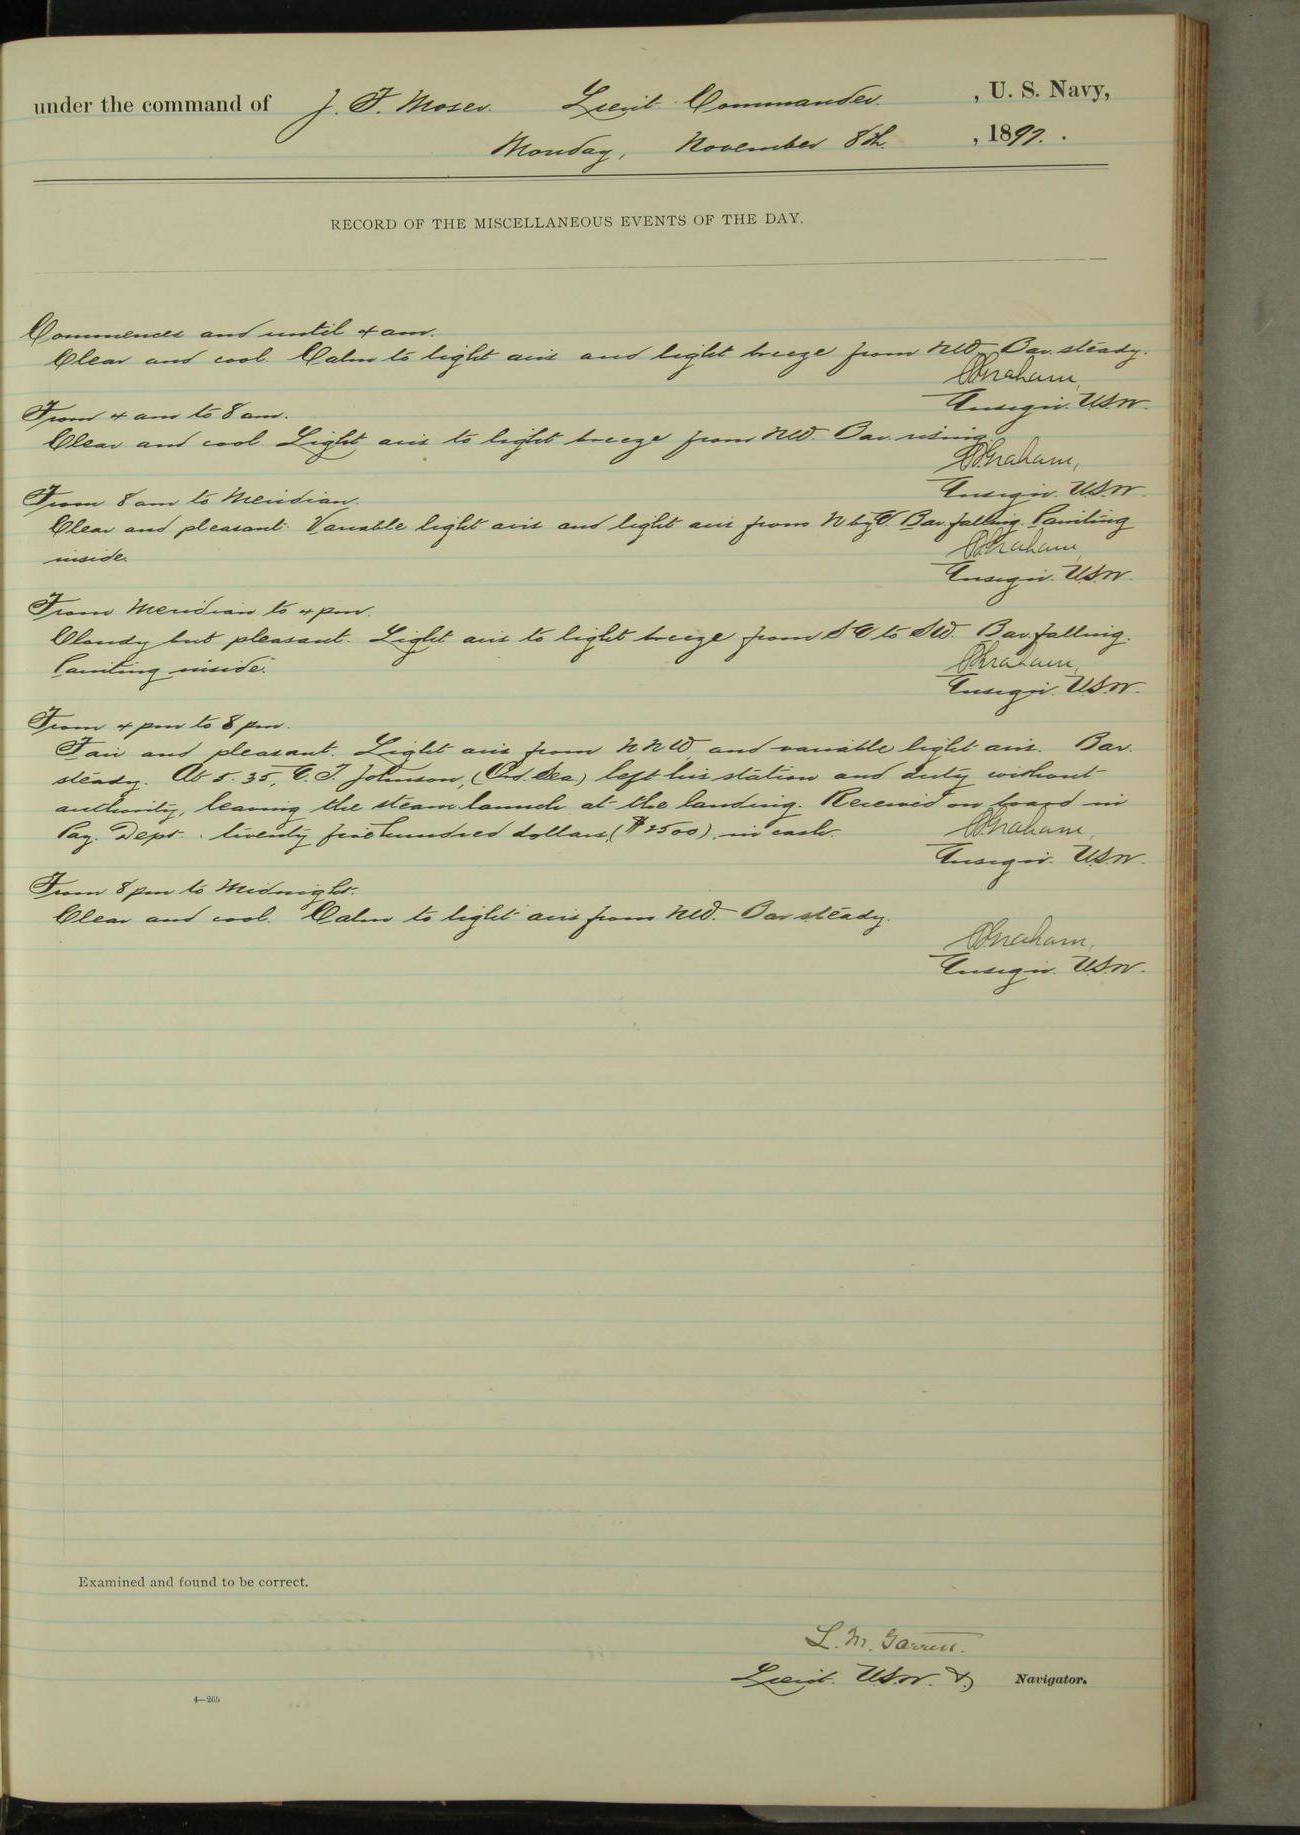 under the command of J. F. Moser. Lieut. Commander. , U. S. Navy,
Monday, November 8th. , 1897. .
RECORD OF THE MISCELLANEOUS EVENTS OF THE DAY.
Commences and until 4 am.
Clear and cool. Calm to light airs and light breeze from NW. Bar. steady.
Graham,
Ensign. U.S.N.
From 4 am to 8 am.
Clear and cool. Light airs to light breeze from NW. Bar. rising.
Graham,
Ensign. U.S.N.
From 8 am to Meridian.
Clear and pleasant. Variable light airs and light airs from N by E. Bar. falling. Painting
inside.
Graham,
Ensign. U.S.N.
From Meridian to 4 pm.
Cloudy but pleasant. Light airs to light breeze from SE to SW. Bar. falling.
Painting inside.
Graham,
Ensign. U.S.N.
From 4 pm to 8 pm.
Fair and pleasant. Light airs from NNW and variable light airs. Bar.
steady. At 5.35, C. T. Johnson, (Ord. Sea.) left his station and duty without
authority, leaving the steam launch at the landing. Received on board in
Pay. Dept. twenty five hundred dollars, ($2500) in cash.
Graham,
Ensign. U.S.N.
From 8 pm to Midnight.
Clear and cool. Calm to light airs from NW. Bar steady.
Graham,
Ensign. U.S.N.
Examined and found to be correct.
L. M. Garrett.
Lieut. U.S.N. & Navigator.
4—265